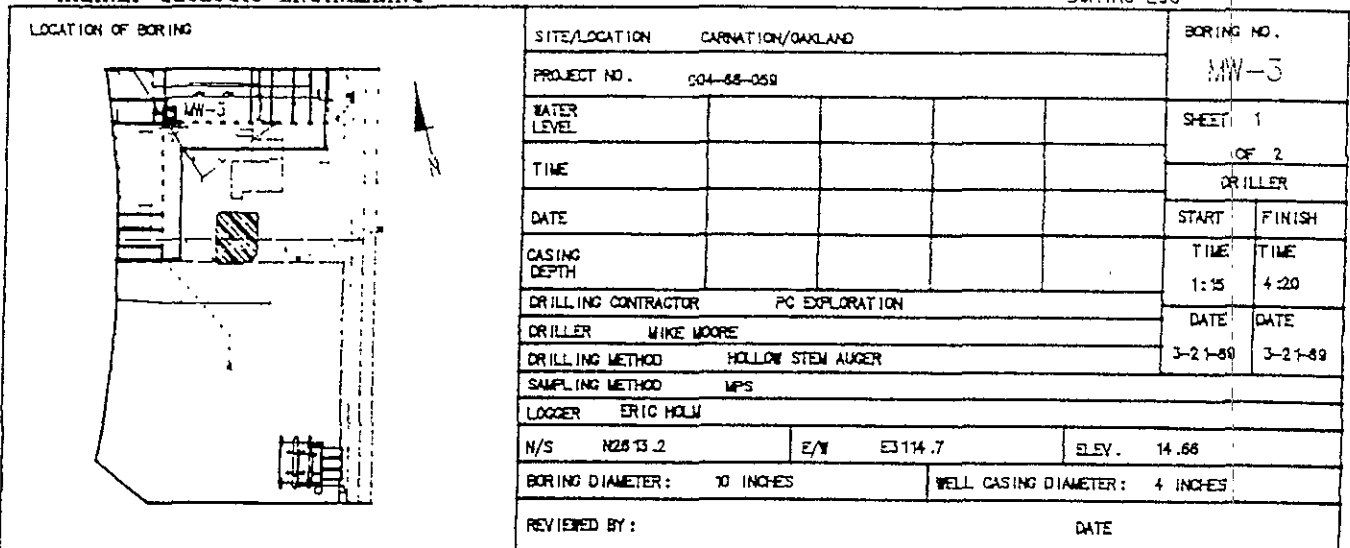 LOCATION OF BORING
MW-3
N
SITE/LOCATION CARNATION/OAKLAND
PROJECT NO. 004-88-059
WATER LEVEL
TIME
DATE
CASING DEPTH
DRILLING CONTRACTOR PC EXPLORATION
DRILLER MIKE MOORE
DRILLING METHOD HOLLOW STEM AUGER
SAMPLING METHOD MPS
LOGGER ERIC HOLM
N/S N2613.2 E/W E3114.7 ELEV. 14.66
BORING DIAMETER: 10 INCHES WELL CASING DIAMETER: 4 INCHES
REVIEWED BY: DATE
BORING NO.
MW-3
SHEET 1
OF 2
DRILLER
START FINISH
TIME TIME
1:15 4:20
DATE DATE
3-21-89 3-21-89